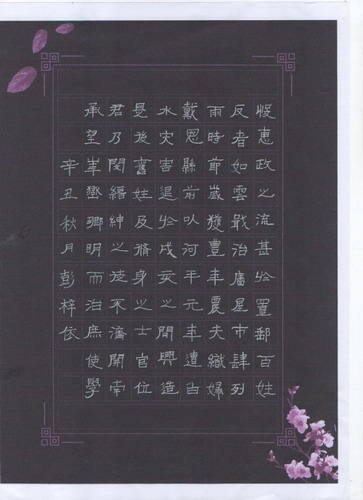 悛惠政之流甚於置郵百姓
反者如雲戢治廧屋市肆列
雨時節歲獲豐年農夫織婦
戴恩縣前以河平元年遭白
水灾害退於戌亥之間興造
是後舊姓及脩身之士官位
君乃閔縉紳之徒不濟開南
承望華嶽鄉明而治庶使學
辛丑秋月彭梓依